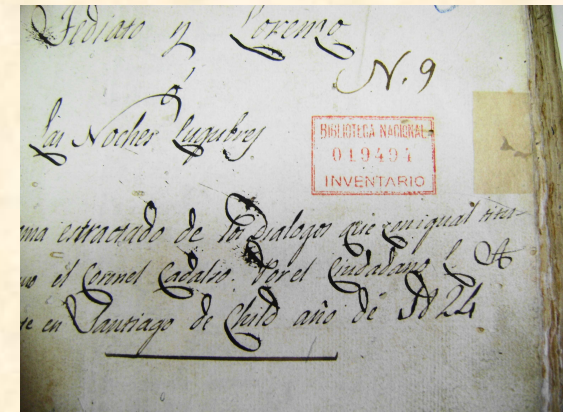 Tediato y Lorenzo
N. 9
ó
las Noches lugubres
BIBLIOTECA NACIONAL
019494
INVENTARIO
ama extractado de los Dialogos que con igual titu-
el Coronel Cadalso. Por el Ciudadano
en Santiago de Chile año de 1824